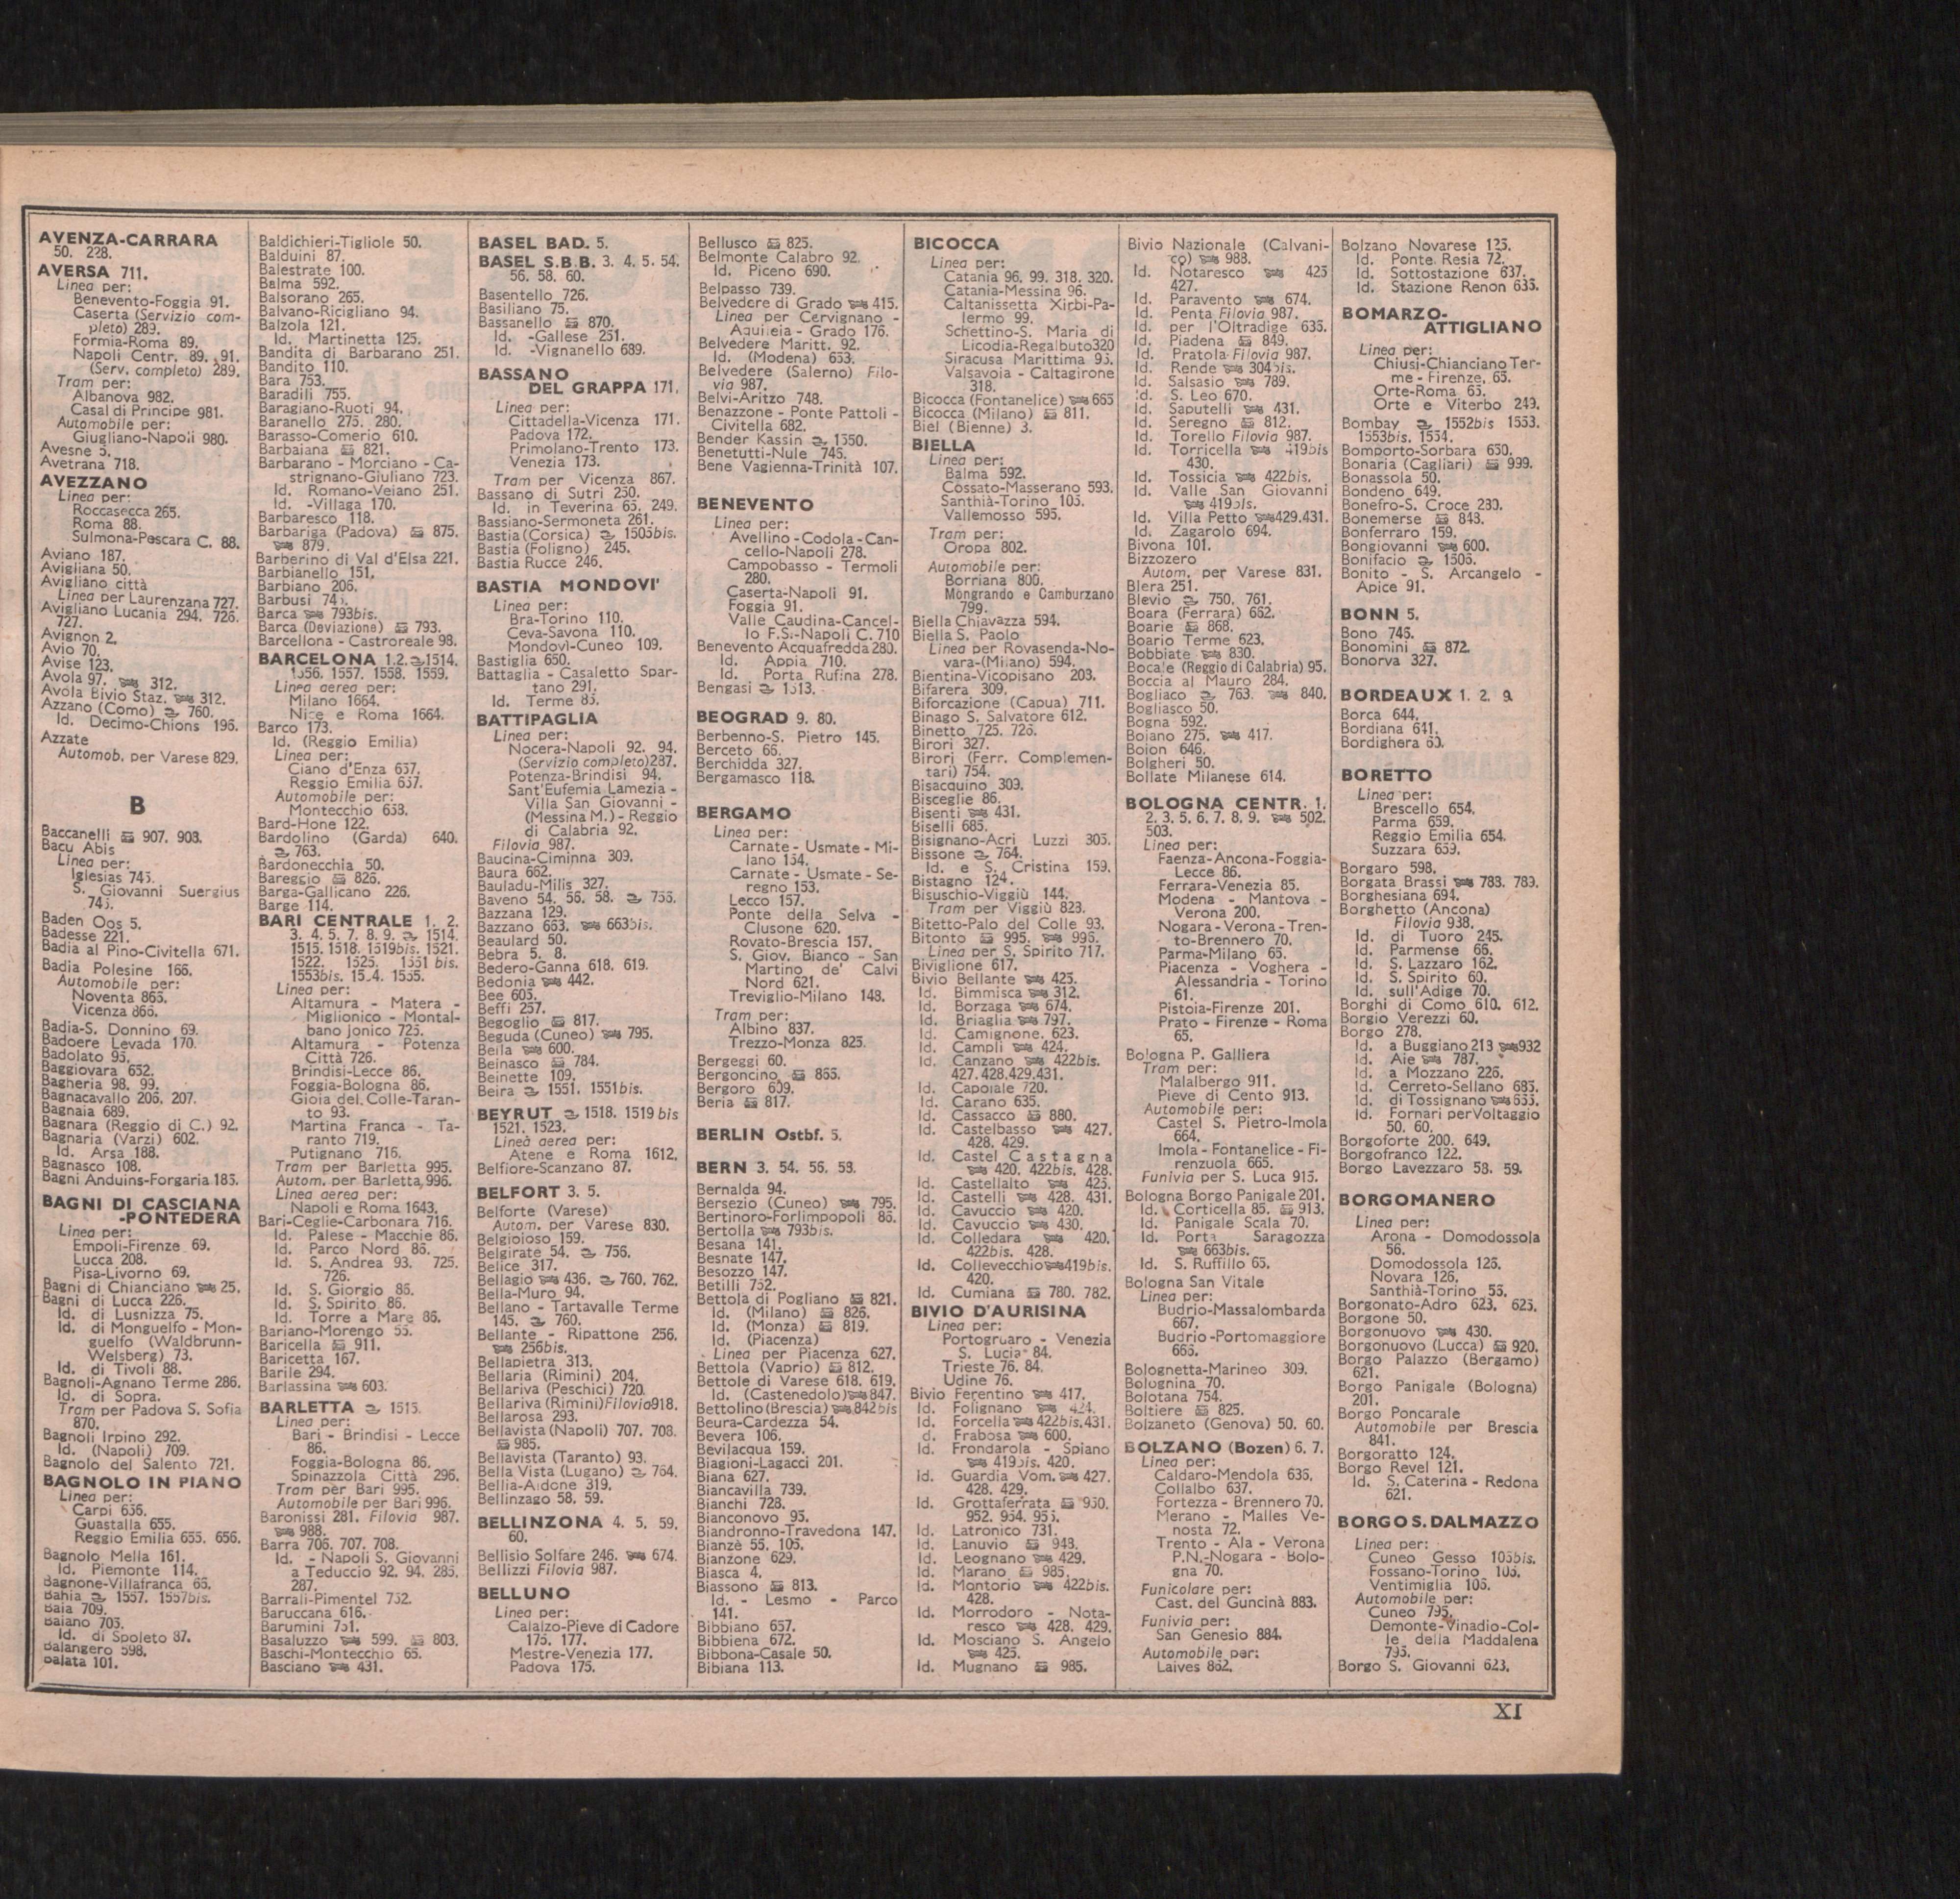 AVENZA-CARRARA
50. 228.
AVERSA 711.
Linea per:
Benevento-Foggia 91.
Caserta (Servizio com-
pleto) 289.
Formia-Roma 89.
Napoli Centr. 89. 91.
(Serv. completo) 289.
Tram per:
Albanova 982.
Casal di Principe 981.
Automobile per:
Giugliano-Napoli 980.
Avesne 5.
Avetrana 718.
AVEZZANO
Linea per:
Roccasecca 265.
Roma 88.
Sulmona-Pescara C. 88.
Aviano 187.
Avigliana 50.
Avigliano città
Linea per Laurenzana 727.
Avigliano Lucania 294. 726.
727.
Avignon 2.
Avio 70.
Avise 123.
Avola 97. 312.
Avola Bivio Staz. 312.
Azzano (Como) 760.
Id. Decimo-Chions 196.
Azzate
Automob. per Varese 829.
B
Baccanelli 907. 908.
Bacu Abis
Linea per:
Iglesias 745.
S. Giovanni Suergius
745.
Baden Oos 5.
Badesse 221.
Badia al Pino-Civitella 671.
Badia Polesine 166.
Automobile per:
Noventa 865.
Vicenza 866.
Badia-S. Donnino 69.
Badoere Levada 170.
Badolato 95.
Baggiovara 652.
Bagheria 98. 99.
Bagnacavallo 206. 207.
Bagnaia 689.
Bagnara (Reggio di C.) 92.
Bagnaria (Varzi) 602.
Id. Arsa 188.
Bagnasco 108.
Bagni Anduins-Forgaria 185.
BAGNI DI CASCIANA
-PONTEDERA
Linea per:
Empoli-Firenze 69.
Lucca 208.
Pisa-Livorno 69.
Bagni di Chianciano 25.
Bagni di Lucca 226.
Id. di Lusnizza 75.
Id. di Monguelfo - Mon-
guelfo (Waldbrunn-
Welsberg) 73.
Id. di Tivoli 88.
Bagnoli-Agnano Terme 286.
Id. di Sopra.
Tram per Padova S. Sofia
870.
Bagnoli Irpino 292.
Id. (Napoli) 709.
Bagnolo del Salento 721.
BAGNOLO IN PIANO
Linea per:
Carpi 656.
Guastalla 655.
Reggio Emilia 655. 656.
Bagnolo Mella 161.
Id. Piemonte 114.
Bagnone-Villafranca 65.
Bahia 1557. 1557bis.
Baia 709.
Baiano 705.
Id. di Spoleto 87.
Balangero 598.
Balata 101.
Baldichieri-Tigliole 50.
Balduini 87.
Balestrate 100.
Balma 592.
Balsorano 265.
Balvano-Ricigliano 94.
Balzola 121.
Id. Martinetta 125.
Bandita di Barbarano 251.
Bandito 110.
Bara 753.
Baradili 755.
Baragiano-Ruoti 94.
Baranello 275. 280.
Barasso-Comerio 610.
Barbaiana 821.
Barbarano - Morciano - Ca-
strignano-Giuliano 723.
Id. Romano-Veiano 251.
Id. -Villaga 170.
Barbaresco 118.
Barbariga (Padova) 875.
879.
Barberino di Val d'Elsa 221.
Barbianello 151.
Barbiano 206.
Barbusi 745.
Barca 793bis.
Barca (Deviazione) 793.
Barcellona - Castroreale 98.
BARCELONA 1.2. 1514.
1556. 1557. 1558. 1559.
Linea aerea per:
Milano 1664.
Nice e Roma 1664.
Barco 173.
Id. (Reggio Emilia)
Linea per:
Ciano d'Enza 657.
Reggio Emilia 657.
Automobile per:
Montecchio 658.
Bard-Hone 122.
Bardolino (Garda) 640.
763.
Bardonecchia 50.
Bareggio 826.
Barga-Gallicano 226.
Barge 114.
BARI CENTRALE 1. 2.
3. 4. 5. 7. 8. 9. 1514.
1515. 1518. 1519bis. 1521.
1522. 1525. 1551 bis.
1553bis. 1554. 1555.
Linea per:
Altamura - Matera -
Miglionico - Montal-
bano Jonico 725.
Altamura - Potenza
Città 726.
Brindisi-Lecce 86.
Foggia-Bologna 86.
Gioia del Colle-Taran-
to 93.
Martina Franca - Ta-
ranto 719.
Putignano 716.
Tram per Barletta 995.
Autom. per Barletta 996.
Linea aerea per:
Napoli e Roma 1643.
Bari-Ceglie-Carbonara 716.
Id. Palese - Macchie 86.
Id. Parco Nord 86.
Id. S. Andrea 93. 725.
726.
Id. S. Giorgio 86.
Id. S. Spirito 86.
Id. Torre a Mare 86.
Bariano-Morengo 55.
Baricella 911.
Baricetta 167.
Barile 294.
Barlassina 603.
BARLETTA 1515.
Linea per:
Bari - Brindisi - Lecce
86.
Foggia-Bologna 86.
Spinazzola Città 296.
Tram per Bari 995.
Automobile per Bari 996.
Baronissi 281. Filovia 987.
988.
Barra 706. 707. 708.
Id. - Napoli S. Giovanni
a Teduccio 92. 94. 285.
287.
Barrali-Pimentel 752.
Baruccana 616.
Barumini 751.
Basaluzzo 599. 803.
Baschi-Montecchio 65.
Basciano 431.
BASEL BAD. 5.
BASEL S.B.B. 3. 4. 5. 54.
56. 58. 60.
Basentello 726.
Basiliano 75.
Bassanello 870.
Id. -Gallese 251.
Id. -Vignanello 689.
BASSANO
DEL GRAPPA 171.
Linea per:
Cittadella-Vicenza 171.
Padova 172.
Primolano-Trento 173.
Venezia 173.
Tram per Vicenza 867.
Bassano di Sutri 250.
Id. in Teverina 65. 249.
Bassiano-Sermoneta 261.
Bastia (Corsica) 1505bis.
Bastia (Foligno) 245.
Bastia Rucce 246.
BASTIA MONDOVI'
Linea per:
Bra-Torino 110.
Ceva-Savona 110.
Mondovì-Cuneo 109.
Bastiglia 650.
Battaglia - Casaletto Spar-
tano 291.
Id. Terme 85.
BATTIPAGLIA
Linea per:
Nocera-Napoli 92. 94.
(Servizio completo) 287.
Potenza-Brindisi 94.
Sant'Eufemia Lamezia -
Villa San Giovanni -
(Messina M.) - Reggio
di Calabria 92.
Filovia 987.
Baucina-Ciminna 309.
Baura 662.
Bauladu-Milis 327.
Baveno 54. 56. 58. 756.
Bazzana 129.
Bazzano 663. 663bis.
Beaulard 50.
Bebra 5. 8.
Bedero-Ganna 618. 619.
Bedonia 442.
Bee 605.
Beffi 257.
Begoglio 817.
Beguda (Cuneo) 795.
Beila 600.
Beinasco 784.
Beinette 109.
Beira 1551. 1551bis.
BEYRUT 1518. 1519 bis
1521. 1523.
Linea aerea per:
Atene e Roma 1612.
Belfiore-Scanzano 87.
BELFORT 3. 5.
Belforte (Varese)
Autom. per Varese 830.
Belgioioso 159.
Belgirate 54. 756.
Belice 317.
Bellagio 436. 760. 762.
Bella-Muro 94.
Bellano - Tartavalle Terme
145. 760.
Bellante - Ripattone 256.
256bis.
Bellapietra 313.
Bellaria (Rimini) 204.
Bellariva (Peschici) 720.
Bellariva (Rimini) Filovia 918.
Bellarosa 293.
Bellavista (Napoli) 707. 708.
985.
Bellavista (Taranto) 93.
Bella Vista (Lugano) 764.
Bellia-Aidone 319.
Bellinzago 58. 59.
BELLINZONA 4. 5. 59.
60.
Bellisio Solfare 246. 674.
Bellizzi Filovia 987.
BELLUNO
Linea per:
Calalzo-Pieve di Cadore
175. 177.
Mestre-Venezia 177.
Padova 175.
Bellusco 825.
Belmonte Calabro 92.
Id. Piceno 690.
Belpasso 739.
Belvedere di Grado 415.
Linea per Cervignano -
Aquileia - Grado 176.
Belvedere Maritt. 92.
Id. (Modena) 653.
Belvedere (Salerno) Filo-
via 987.
Belvi-Aritzo 748.
Benazzone - Ponte Pattoli -
Civitella 682.
Bender Kassin 1550.
Benetutti-Nule 745.
Bene Vagienna-Trinità 107.
BENEVENTO
Linea per:
Avellino - Codola - Can-
cello-Napoli 278.
Campobasso - Termoli
280.
Caserta-Napoli 91.
Foggia 91.
Valle Caudina-Cancel-
lo F.S.-Napoli C. 710
Benevento Acquafredda 280.
Id. Appia 710.
Id. Porta Rufina 278.
Bengasi 1513.
BEOGRAD 9. 80.
Berbenno-S. Pietro 145.
Berceto 66.
Berchidda 327.
Bergamasco 118.
BERGAMO
Linea per:
Carnate - Usmate - Mi-
lano 154.
Carnate - Usmate - Se-
regno 153.
Lecco 157.
Ponte della Selva -
Clusone 620.
Rovato-Brescia 157.
S. Giov. Bianco - San
Martino de' Calvi
Nord 621.
Treviglio-Milano 148.
Tram per:
Albino 837.
Trezzo-Monza 825.
Bergeggi 60.
Bergoncino 866.
Bergoro 609.
Beria 817.
BERLIN Ostbf. 5.
BERN 3. 54. 56. 58.
Bernalda 94.
Bersezio (Cuneo) 795.
Bertinoro-Forlimpopoli 86.
Bertolla 793bis.
Besana 141.
Besnate 147.
Besozzo 147.
Betilli 752.
Bettola di Pogliano 821.
Id. (Milano) 826.
Id. (Monza) 819.
Id. (Piacenza)
Linea per Piacenza 627.
Bettola (Vaprio) 812.
Bettole di Varese 618. 619.
Id. (Castenedolo) 847.
Bettolino (Brescia) 842bis
Beura-Cardezza 54.
Bevera 106.
Bevilacqua 159.
Biagioni-Lagacci 201.
Biana 627.
Biancavilla 739.
Bianchi 728.
Bianconovo 95.
Biandronno-Travedona 147.
Bianzè 55. 105.
Bianzone 629.
Biasca 4.
Biassono 813.
Id. - Lesmo - Parco
141.
Bibbiano 657.
Bibbiena 672.
Bibbona-Casale 50.
Bibiana 113.
BICOCCA
Linea per:
Catania 96. 99. 318. 320.
Catania-Messina 96.
Caltanissetta Xirbi-Pa-
lermo 99.
Schettino-S. Maria di
Licodia-Regalbuto 320
Siracusa Marittima 95.
Valsavoia - Caltagirone
318.
Bicocca (Fontanelice) 665
Bicocca (Milano) 811.
Biel (Bienne) 3.
BIELLA
Linea per:
Balma 592.
Cossato-Masserano 593.
Santhià-Torino 105.
Vallemosso 595.
Tram per:
Oropa 802.
Automobile per:
Borriana 800.
Mongrando e Camburzano
799.
Biella Chiavazza 594.
Biella S. Paolo
Linea per Rovasenda-No-
vara-(Milano) 594.
Bientina-Vicopisano 203.
Bifarera 309.
Biforcazione (Capua) 711.
Binago S. Salvatore 612.
Binetto 725. 726.
Birori 327.
Birori (Ferr. Complemen-
tari) 754.
Bisacquino 309.
Bisceglie 86.
Bisenti 431.
Biselli 685.
Bisignano-Acri Luzzi 305.
Bissone 764.
Id. e S. Cristina 159.
Bistagno 124.
Bisuschio-Viggiù 144.
Tram per Viggiù 823.
Bitetto-Palo del Colle 93.
Bitonto 995. 996.
Linea per S. Spirito 717.
Biviglione 617.
Bivio Bellante 425.
Id. Bimmisca 312.
Id. Borzaga 674.
Id. Briaglia 797.
Id. Camignone. 623.
Id. Campli 424.
Id. Canzano 422bis.
427. 428. 429. 431.
Id. Capoiale 720.
Id. Carano 635.
Id. Cassacco 880.
Id. Castelbasso 427.
428. 429.
Id. Castel Castagna
420. 422bis. 428.
Id. Castellalto 425.
Id. Castelli 428. 431.
Id. Cavuccio 420.
Id. Cavuccio 430.
Id. Colledara 420.
422bis. 428.
Id. Collevecchio 419bis.
420.
Id. Cumiana 780. 782.
BIVIO D'AURISINA
Linea per:
Portogruaro - Venezia
S. Lucia 84.
Trieste 76. 84.
Udine 76.
Bivio Ferentino 417.
Id. Folignano 424.
Id. Forcella 422bis. 431.
d. Frabosa 600.
Id. Frondarola - Spiano
419bis. 420.
Id. Guardia Vom. 427.
428. 429.
Id. Grottaferrata 950.
952. 954. 955.
Id. Latronico 731.
Id. Lanuvio 948.
Id. Leognano 429.
Id. Marano 985.
Id. Montorio 422bis.
428.
Id. Morrodoro - Nota-
resco 428. 429.
Id. Mosciano S. Angelo
425.
Id. Mugnano 985.
Bivio Nazionale (Calvani-
co) 988.
Id. Notaresco 425
427.
Id. Paravento 674.
Id. Penta Filovia 987.
Id. per l'Oltradige 635.
Id. Piadena 849.
Id. Pratola Filovia 987.
Id. Rende 304bis.
Id. Salsasio 789.
Id. S. Leo 670.
Id. Saputelli 431.
Id. Seregno 812.
Id. Torello Filovia 987.
Id. Torricella 419bis
430.
Id. Tossicia 422bis.
Id. Valle San Giovanni
419bis.
Id. Villa Petto 429.431.
Id. Zagarolo 694.
Bivona 101.
Bizzozero
Autom. per Varese 831.
Blera 251.
Blevio 750. 761.
Boara (Ferrara) 662.
Boarie 868.
Boario Terme 623.
Bobbiate 830.
Bocale (Reggio di Calabria) 95.
Boccia al Mauro 284.
Bogliaco 763. 840.
Bogliasco 50.
Bogna 592.
Boiano 275. 417.
Boion 646.
Bolgheri 50.
Bollate Milanese 614.
BOLOGNA CENTR. 1.
2. 3. 5. 6. 7. 8. 9. 502.
503.
Linea per:
Faenza-Ancona-Foggia-
Lecce 86.
Ferrara-Venezia 85.
Modena - Mantova -
Verona 200.
Nogara - Verona - Tren-
to-Brennero 70.
Parma-Milano 65.
Piacenza - Voghera -
Alessandria - Torino
61.
Pistoia-Firenze 201.
Prato - Firenze - Roma
65.
Bologna P. Galliera
Tram per:
Malalbergo 911.
Pieve di Cento 913.
Automobile per:
Castel S. Pietro-Imola
664.
Imola - Fontanelice - Fi-
renzuola 665.
Funivia per S. Luca 915.
Bologna Borgo Panigale 201.
Id. Corticella 85. 913.
Id. Panigale Scala 70.
Id. Porta Saragozza
663bis.
Id. S. Ruffillo 65.
Bologna San Vitale
Linea per:
Budrio-Massalombarda
667.
Budrio-Portomaggiore
665.
Bolognetta-Marineo 309.
Bolognina 70.
Bolotana 754.
Boltiere 825.
Bolzaneto (Genova) 50. 60.
BOLZANO (Bozen) 6. 7.
Linea per:
Caldaro-Mendola 635.
Collalbo 637.
Fortezza - Brennero 70.
Merano - Malles Ve-
nosta 72.
Trento - Ala - Verona
P.N.-Nogara - Bolo-
gna 70.
Funicolare per:
Cast. del Guncinà 883.
Funivia per:
San Genesio 884.
Automobile per:
Laives 882.
Bolzano Novarese 125.
Id. Ponte Resia 72.
Id. Sottostazione 637.
Id. Stazione Renon 635.
BOMARZO-
ATTIGLIANO
Linea per:
Chiusi-Chianciano Ter-
me - Firenze. 65.
Orte-Roma 65.
Orte e Viterbo 249.
Bombay 1552bis 1553.
1553bis. 1554.
Bomporto-Sorbara 650.
Bonaria (Cagliari) 999.
Bonassola 50.
Bondeno 649.
Bonefro-S. Croce 280.
Bonemerse 848.
Bonferraro 159.
Bongiovanni 600.
Bonifacio 1506.
Bonito - S. Arcangelo -
Apice 91.
BONN 5.
Bono 745.
Bonomini 872.
Bonorva 327.
BORDEAUX 1. 2. 9.
Borca 644.
Bordiana 641.
Bordighera 60.
BORETTO
Linea per:
Brescello 654.
Parma 659.
Reggio Emilia 654.
Suzzara 659.
Borgaro 598.
Borgata Brassi 788. 789.
Borghesiana 694.
Borghetto (Ancona)
Filovia 938.
Id. di Tuoro 245.
Id. Parmense 66.
Id. S. Lazzaro 162.
Id. S. Spirito 60.
Id. sull'Adige 70.
Borghi di Como 610. 612.
Borgio Verezzi 60.
Borgo 278.
Id. a Buggiano 213 932
Id. Aie 787.
Id. a Mozzano 226.
Id. Cerreto-Sellano 685.
Id. di Tossignano 665.
Id. Fornari per Voltaggio
50. 60.
Borgoforte 200. 649.
Borgofranco 122.
Borgo Lavezzaro 58. 59.
BORGOMANERO
Linea per:
Arona - Domodossola
56.
Domodossola 126.
Novara 126.
Santhià-Torino 55.
Borgonato-Adro 623. 625.
Borgone 50.
Borgonuovo 430.
Borgonuovo (Lucca) 920.
Borgo Palazzo (Bergamo)
621.
Borgo Panigale (Bologna)
201.
Borgo Poncarale
Automobile per Brescia
841.
Borgoratto 124.
Borgo Revel 121.
Id. S. Caterina - Redona
621.
BORGO S. DALMAZZO
Linea per:
Cuneo Gesso 105bis.
Fossano-Torino 105.
Ventimiglia 105.
Automobile per:
Cuneo 795.
Demonte-Vinadio-Col-
le della Maddalena
795.
Borgo S. Giovanni 623.
XI